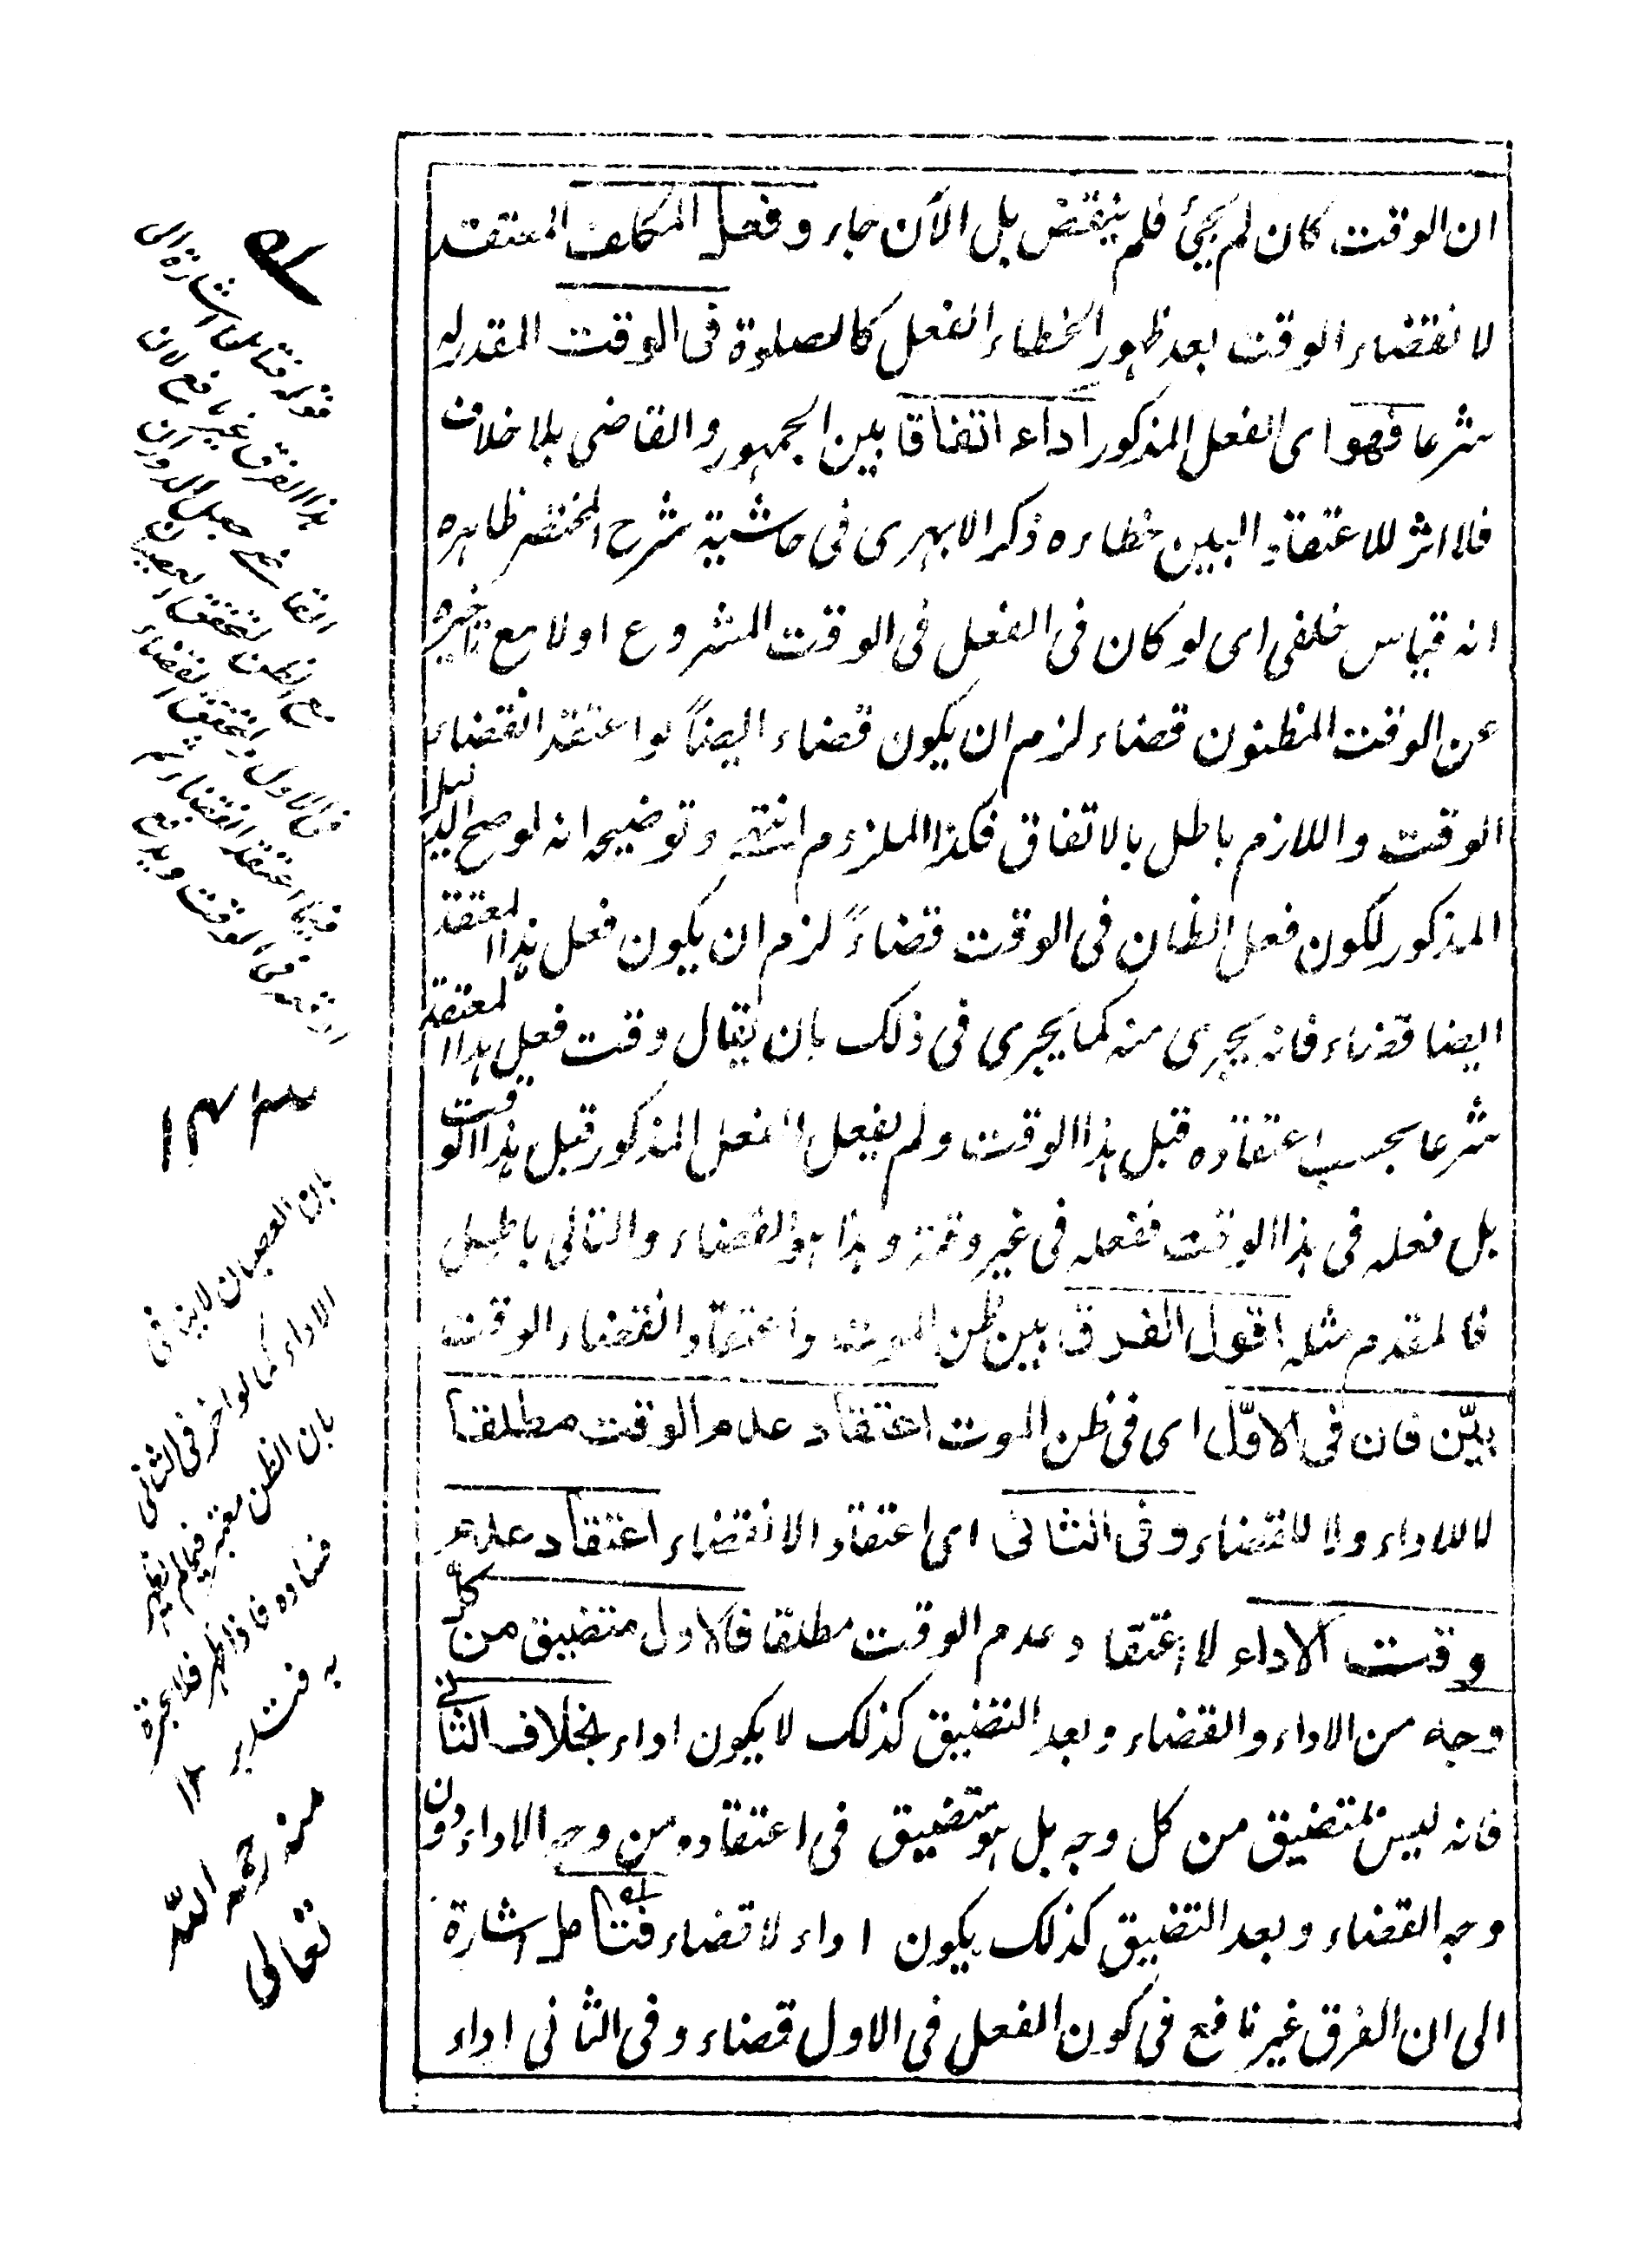 ان الوقت كان لم يجئ فلم ينقض بل الآن جاء وفعل المكلف المعتقد
لانقضاء الوقت بعد ظهور الخطاء الفعل كالصلوة فى الوقت المقدر له
شرعا فهو اى الفعل المذكور اداء اتفاقا بين الجمهور والقاضى بلا خلاف
فلا اثر للاعتقاد البين خطاءه ذكر الابهرى فى حاشية شرح المختصر ظاهره
انه قياس خلفى اى لو كان فى الفعل فى الوقت المشروع اولا مع تاخيره
عن الوقت المظنون قضاء لزم ان يكون قضاء ايضاً لو اعتقد انقضاء
الوقت واللازم باطل بالاتفاق فكذا الملزوم انتهى وتوضيحه انه لو صح الدليل
المذكور لكون فعل الظان فى الوقت قضاءً لزم ان يكون فعل هذا المعتقد
ايضا قضاء فانه يجرى منه كما يجرى فى ذلك بان يقال وقت فعل هذا المعتقد
شرعا بحسب اعتقاده قبل هذا الوقت ولم يفعل الفعل المذكور قبل هذا الوقت
بل فعله فى هذا الوقت ففعله فى غير وقته وهذا هو القضاء والتالى باطل
فالمقدم مثله اقول الفرق بين ظن الموت واعتقاد انقضاء الوقت
بيّن فان فى الاوّل اى فى ظن الموت اعتقاد عدم الوقت مطلقا
لا للاداء ولا للقضاء وفى الثانى اى اعتقاد الانقضاء اعتقاد عدم
وقت الاداء لا اعتقاد عدم الوقت مطلقا فالاول متضيق من كل
وجه من الاداء والقضاء وبعد التضيق كذلك لا يكون اداء بخلاف الثانى
فانه ليس بمتضيق من كل وجه بل هو متضيق فى اعتقاده من وجه الاداء دون
وجه القضاء وبعد التضيق كذلك يكون اداء لا قضاء فتأمل اشارة
الى ان الفرق غير نافع فى كون الفعل فى الاول قضاء وفى الثانى اداء
قوله فتامل اشارة الى
هذا الفرق غير نافع لان
مع الظن
فى الاول
فيما اعتقد انقضاء
بان العصيان لا ينافى
الاداء كما لو اخر فى الثانى
بان الظن معتبر فيما لم يظهر
فساده فاذا ظهر فلا عبرة
به فتدبر ١٢
منه رحمه الله
تعالى